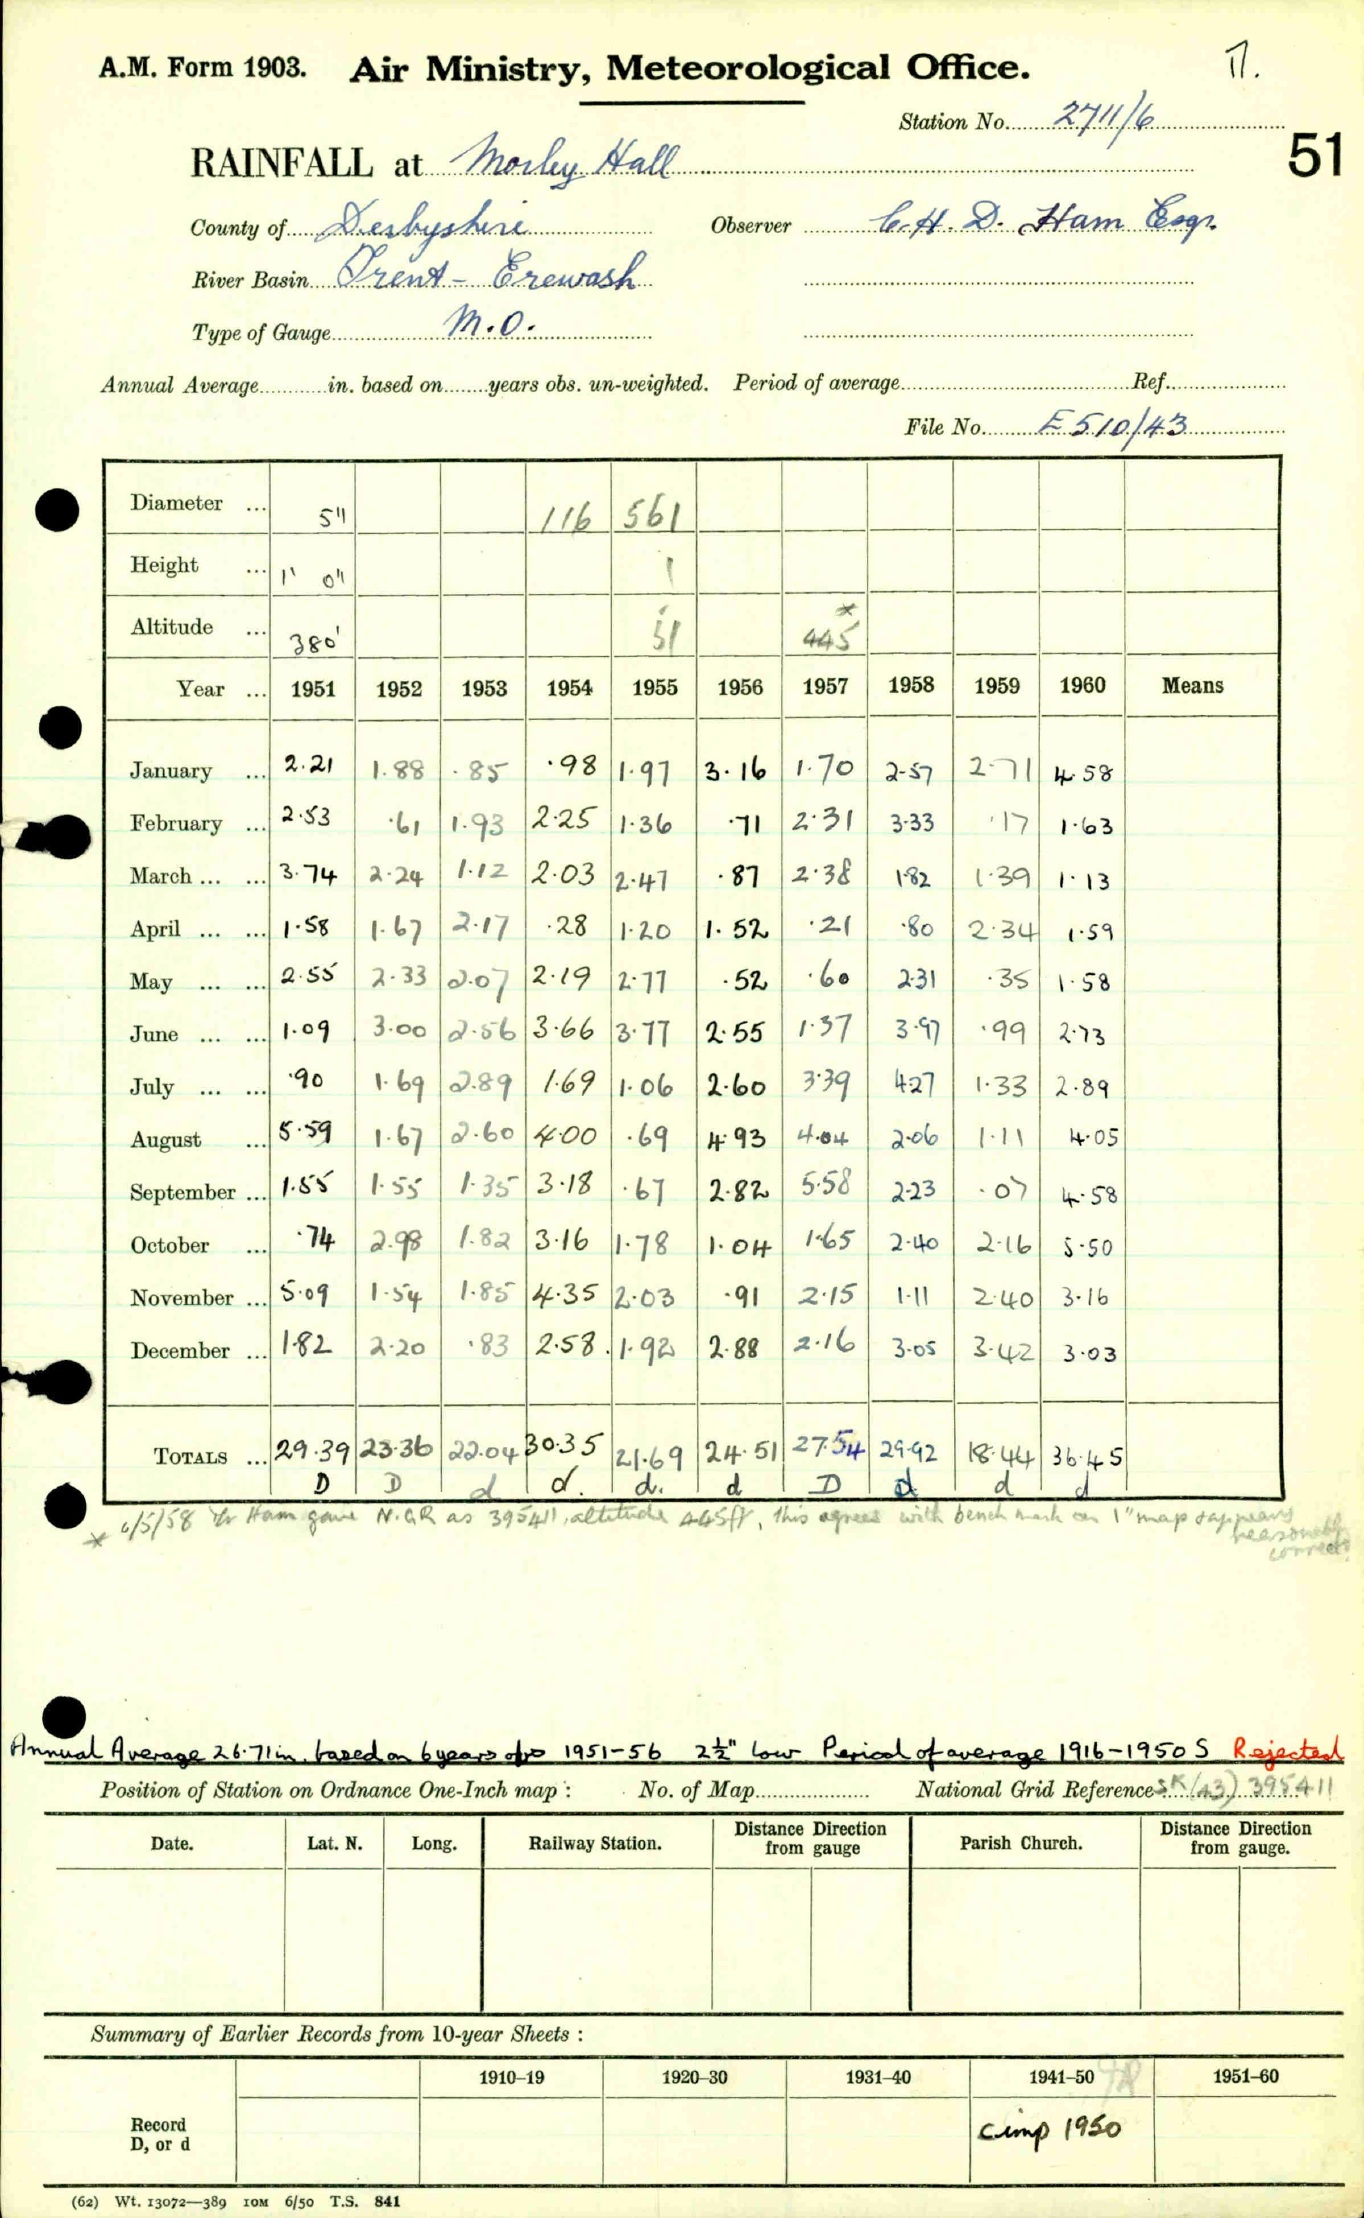 A.M. Form 1903. Air Ministry, Meteorological Office.
Station No. 2711/6
51
RAINFALL at Morley Hall
County of Derbyshire Observer C.H.D. Ham Esqr.
River Basin Trent - Erewash
Type of Gauge M.O.
Annual Average in. based on years obs. un-weighted. Period of average Ref.
File No. E510/43
Diameter ... 5" 116 561
Height ... 1' 0" 1
Altitude ... 380' 51 445 *
Year ... 1951 1952 1953 1954 1955 1956 1957 1958 1959 1960 Means
January ... 2.21 1.88 .85 .98 1.97 3.16 1.70 2.57 2.71 4.58
February ... 2.53 .61 1.93 2.25 1.36 .71 2.31 3.33 .17 1.63
March ... ... 3.74 2.24 1.12 2.03 2.47 .87 2.38 1.82 1.39 1.13
April ... ... 1.58 1.67 2.17 .28 1.20 1.52 .21 .80 2.34 1.59
May ... ... 2.55 2.33 2.07 2.19 2.77 .52 .60 2.31 .35 1.58
June ... ... 1.09 3.00 2.56 3.66 3.77 2.55 1.37 3.97 .99 2.73
July ... ... .90 1.69 2.89 1.69 1.06 2.60 3.39 4.27 1.33 2.89
August ... 5.59 1.67 2.60 4.00 .69 4.93 4.04 2.06 1.11 4.05
September ... 1.55 1.55 1.35 3.18 .67 2.82 5.58 2.23 .07 4.58
October ... .74 2.98 1.82 3.16 1.78 1.04 1.65 2.40 2.16 5.50
November ... 5.09 1.54 1.85 4.35 2.03 .91 2.15 1.11 2.40 3.16
December ... 1.82 2.20 .83 2.58 1.92 2.88 2.16 3.05 3.42 3.03
TOTALS ... 29.39 23.36 22.04 30.35 21.69 24.51 27.54 29.92 18.44 36.45
D D d d. d. d D d d d
* 6/5/58 Mr Ham gave N.G.R as 395411, altitude 445ft, this agrees with bench mark on 1" map & appears
reasonably
correct.
Annual Average 26.71 in. based on 6 years obs 1951-56 2½" low Period of average 1916-1950 S Rejected
Position of Station on Ordnance One-Inch map : No. of Map National Grid Reference SK(43) 395411
Date. Lat. N. Long. Railway Station. Distance Direction from gauge Parish Church. Distance Direction from gauge.
Summary of Earlier Records from 10-year Sheets :
1910–19 1920–30 1931–40 1941–50 1951–60
Record
D, or d
cimp 1950
(62) Wt. 13072—389 10M 6/50 T.S. 841